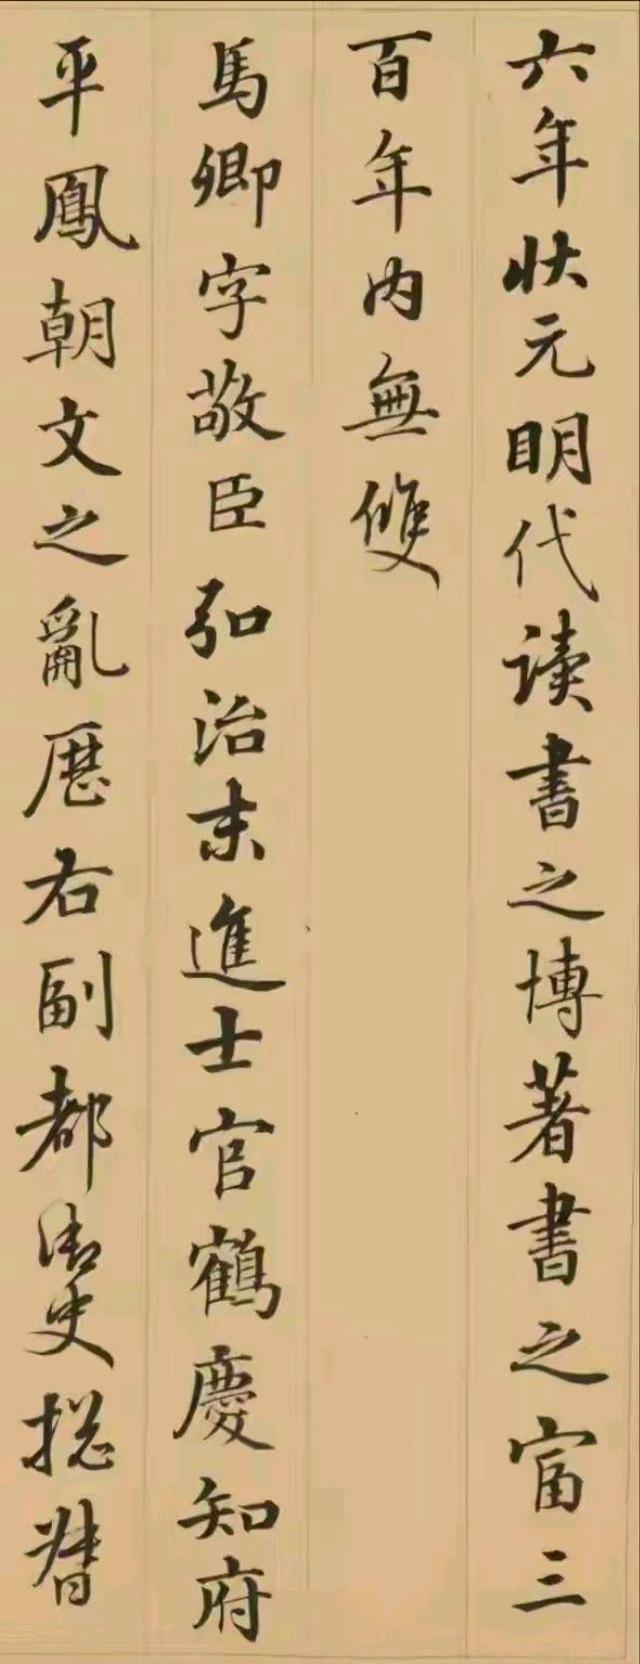 六年状元明代读書之博著書之富三
百年内無雙
馬卿字敬臣弘治末進士官鶴慶知府
平鳳朝文之亂歷右副都御史揔督